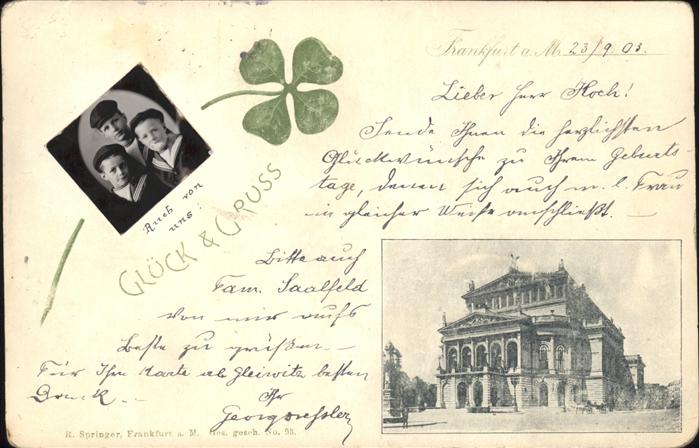 Frankfurt a. M. 23/9 03.
Lieber Herr Koch!
Sende Ihnen die herzlichsten
Glückwünsche zu Ihrem Geburts-
tage, denen sich auch m. l. Frau
in gleicher Weise anschließt. —
Auch von
uns!
GLÜCK & GRUSS
Bitte auch
Fam. Saalfeld
von mir aufs
Beste zu grüßen. —
Für Ihre Karte ab Gleiwitz besten
Dank. —
Ihr
Georg
R. Springer, Frankfurt a. M. Ges. gesch. No. 95.